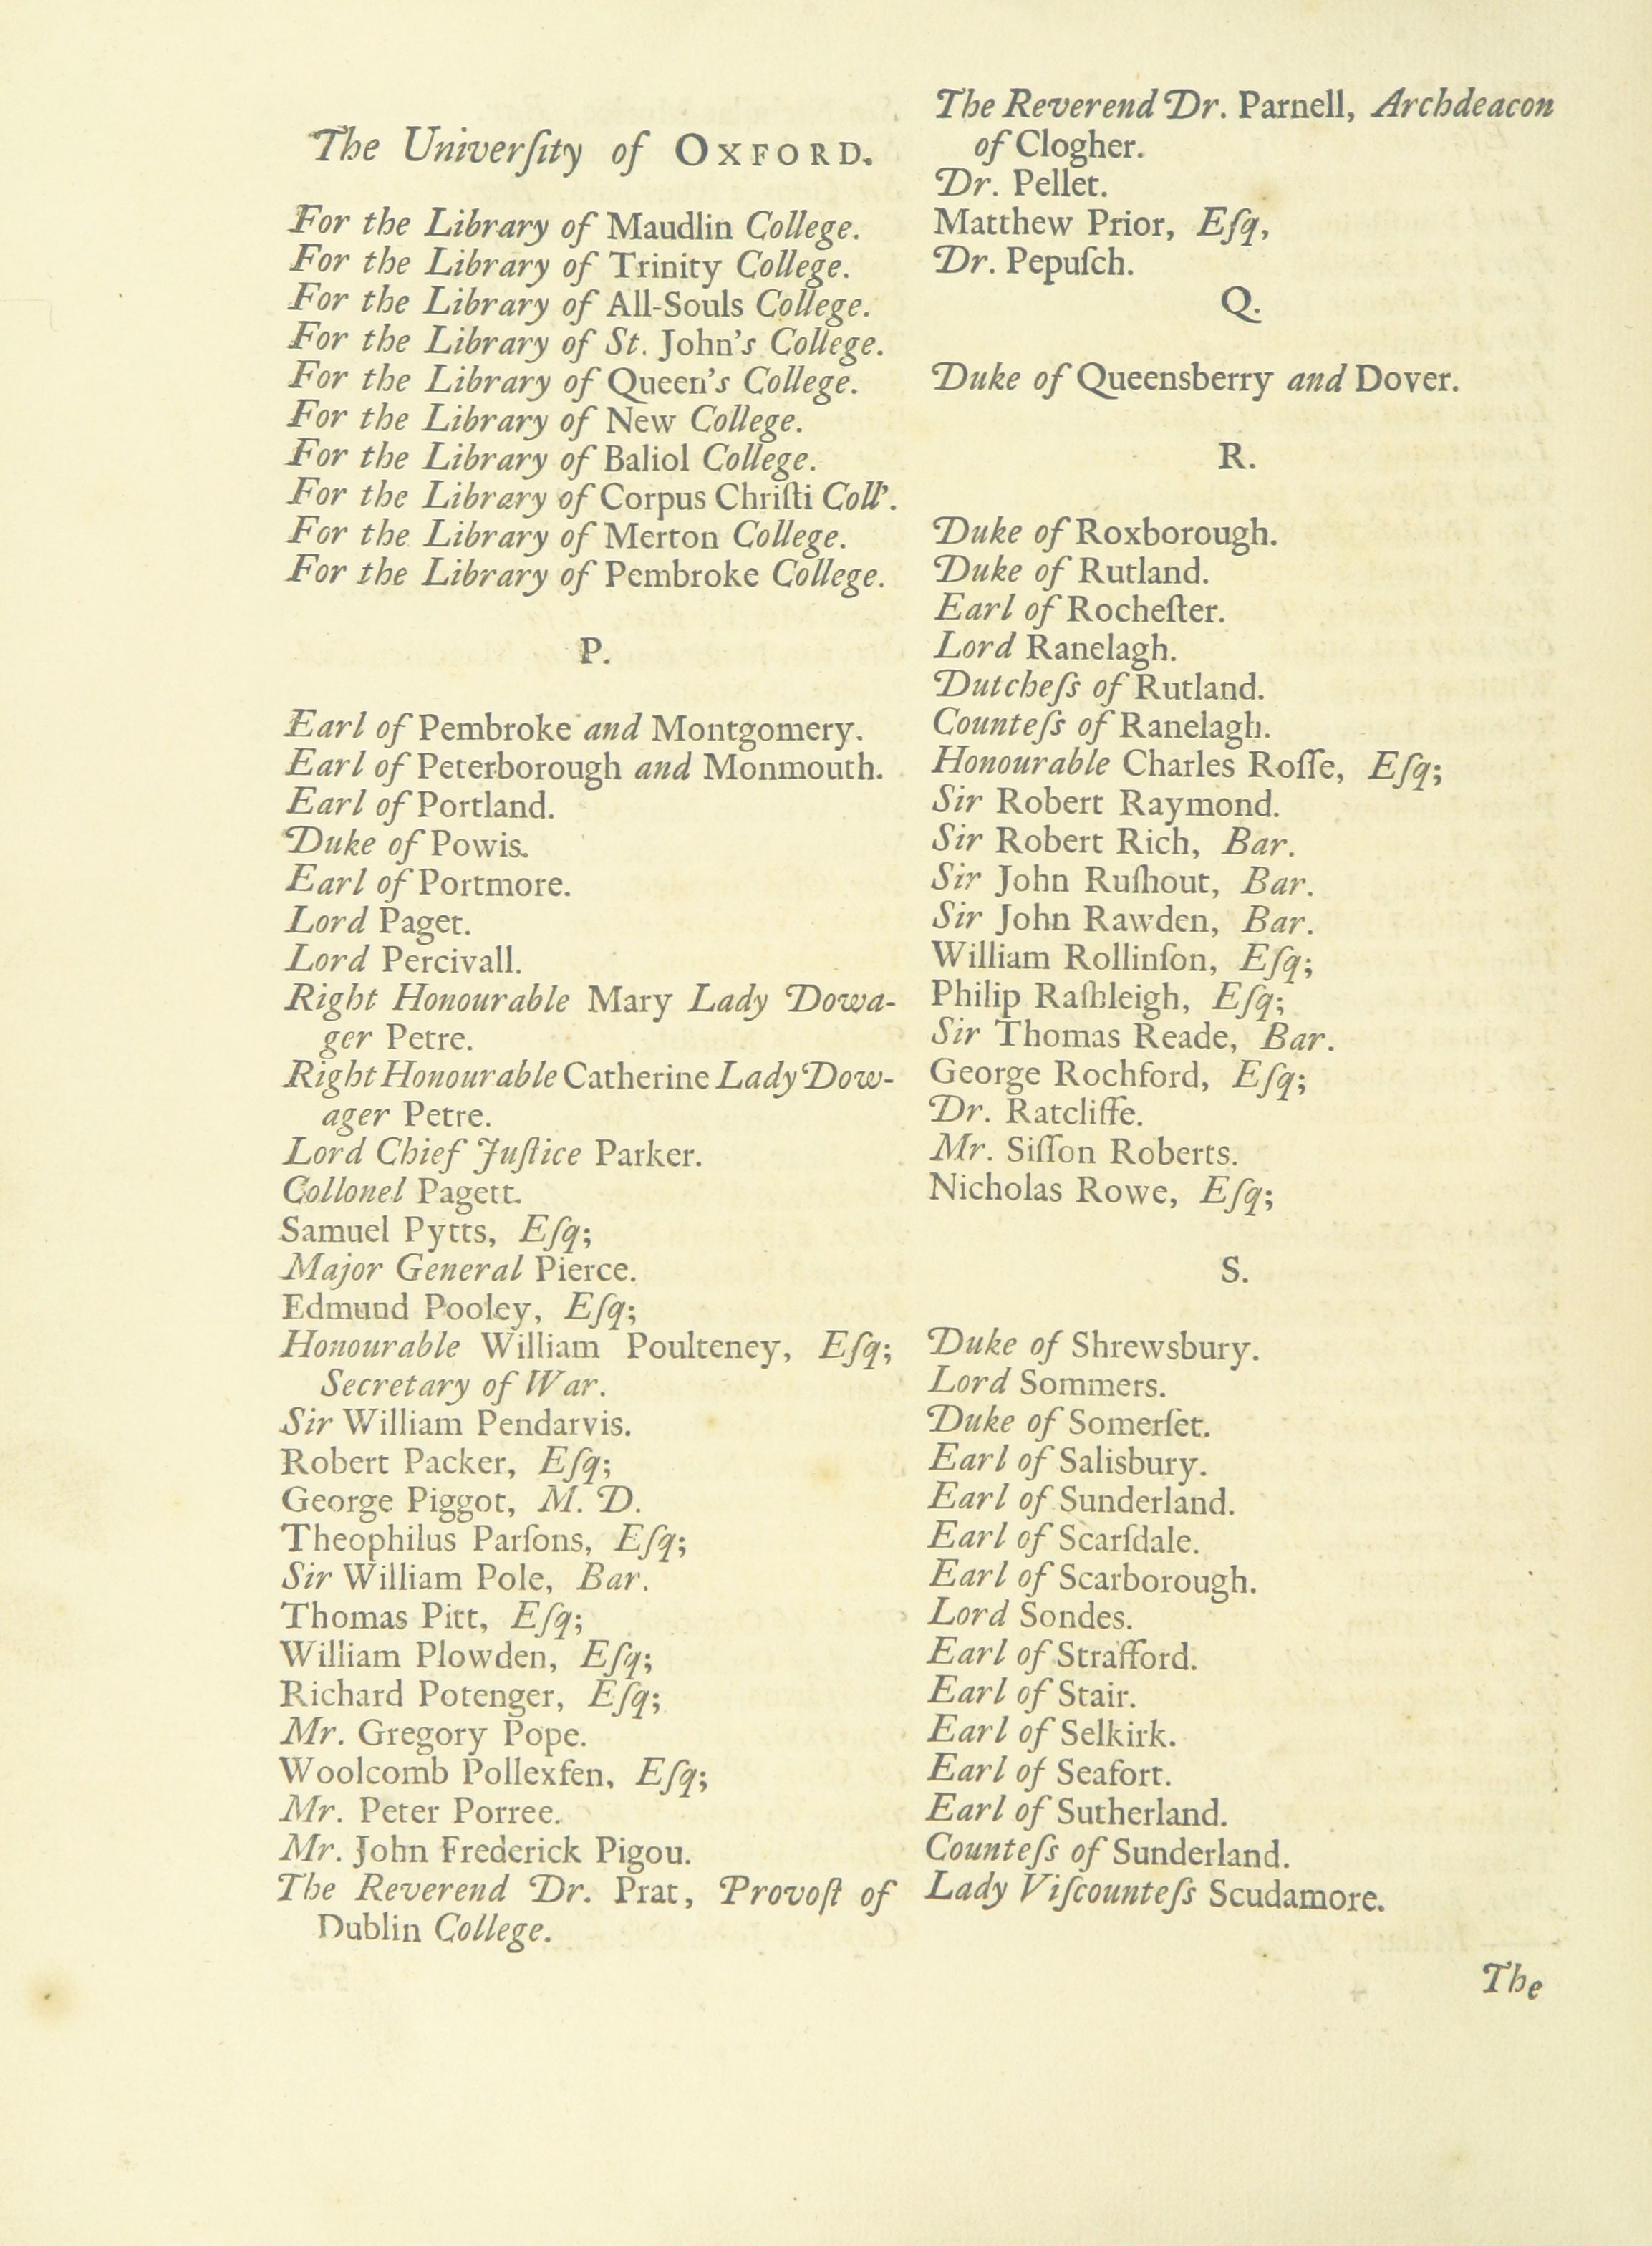 The Univerſity of OXFORD.
For the Library of Maudlin College.
For the Library of Trinity College.
For the Library of All-Souls College.
For the Library of St. John's College.
For the Library of Queen's College.
For the Library of New College.
For the Library of Baliol College.
For the Library of Corpus Chriſti Coll'.
For the Library of Merton College.
For the Library of Pembroke College.
P.
Earl of Pembroke and Montgomery.
Earl of Peterborough and Monmouth.
Earl of Portland.
Duke of Powis.
Earl of Portmore.
Lord Paget.
Lord Percivall.
Right Honourable Mary Lady Dowa-
ger Petre.
Right Honourable Catherine Lady Dow-
ager Petre.
Lord Chief Juſtice Parker.
Collonel Pagett.
Samuel Pytts, Eſq;
Major General Pierce.
Edmund Pooley, Eſq;
Honourable William Poulteney, Eſq;
Secretary of War.
Sir William Pendarvis.
Robert Packer, Eſq;
George Piggot, M. D.
Theophilus Parſons, Eſq;
Sir William Pole, Bar.
Thomas Pitt, Eſq;
William Plowden, Eſq;
Richard Potenger, Eſq;
Mr. Gregory Pope.
Woolcomb Pollexfen, Eſq;
Mr. Peter Porree.
Mr. John Frederick Pigou.
The Reverend Dr. Prat, Provoſt of
Dublin College.
The Reverend Dr. Parnell, Archdeacon
of Clogher.
Dr. Pellet.
Matthew Prior, Eſq,
Dr. Pepuſch.
Q.
Duke of Queensberry and Dover.
R.
Duke of Roxborough.
Duke of Rutland.
Earl of Rocheſter.
Lord Ranelagh.
Dutcheſs of Rutland.
Counteſs of Ranelagh.
Honourable Charles Roſſe, Eſq;
Sir Robert Raymond.
Sir Robert Rich, Bar.
Sir John Ruſhout, Bar.
Sir John Rawden, Bar.
William Rollinſon, Eſq;
Philip Raſhleigh, Eſq;
Sir Thomas Reade, Bar.
George Rochford, Eſq;
Dr. Ratcliffe.
Mr. Siſſon Roberts.
Nicholas Rowe, Eſq;
S.
Duke of Shrewsbury.
Lord Sommers.
Duke of Somerſet.
Earl of Salisbury.
Earl of Sunderland.
Earl of Scarſdale.
Earl of Scarborough.
Lord Sondes.
Earl of Strafford.
Earl of Stair.
Earl of Selkirk.
Earl of Seafort.
Earl of Sutherland.
Counteſs of Sunderland.
Lady Viſcounteſs Scudamore.
The